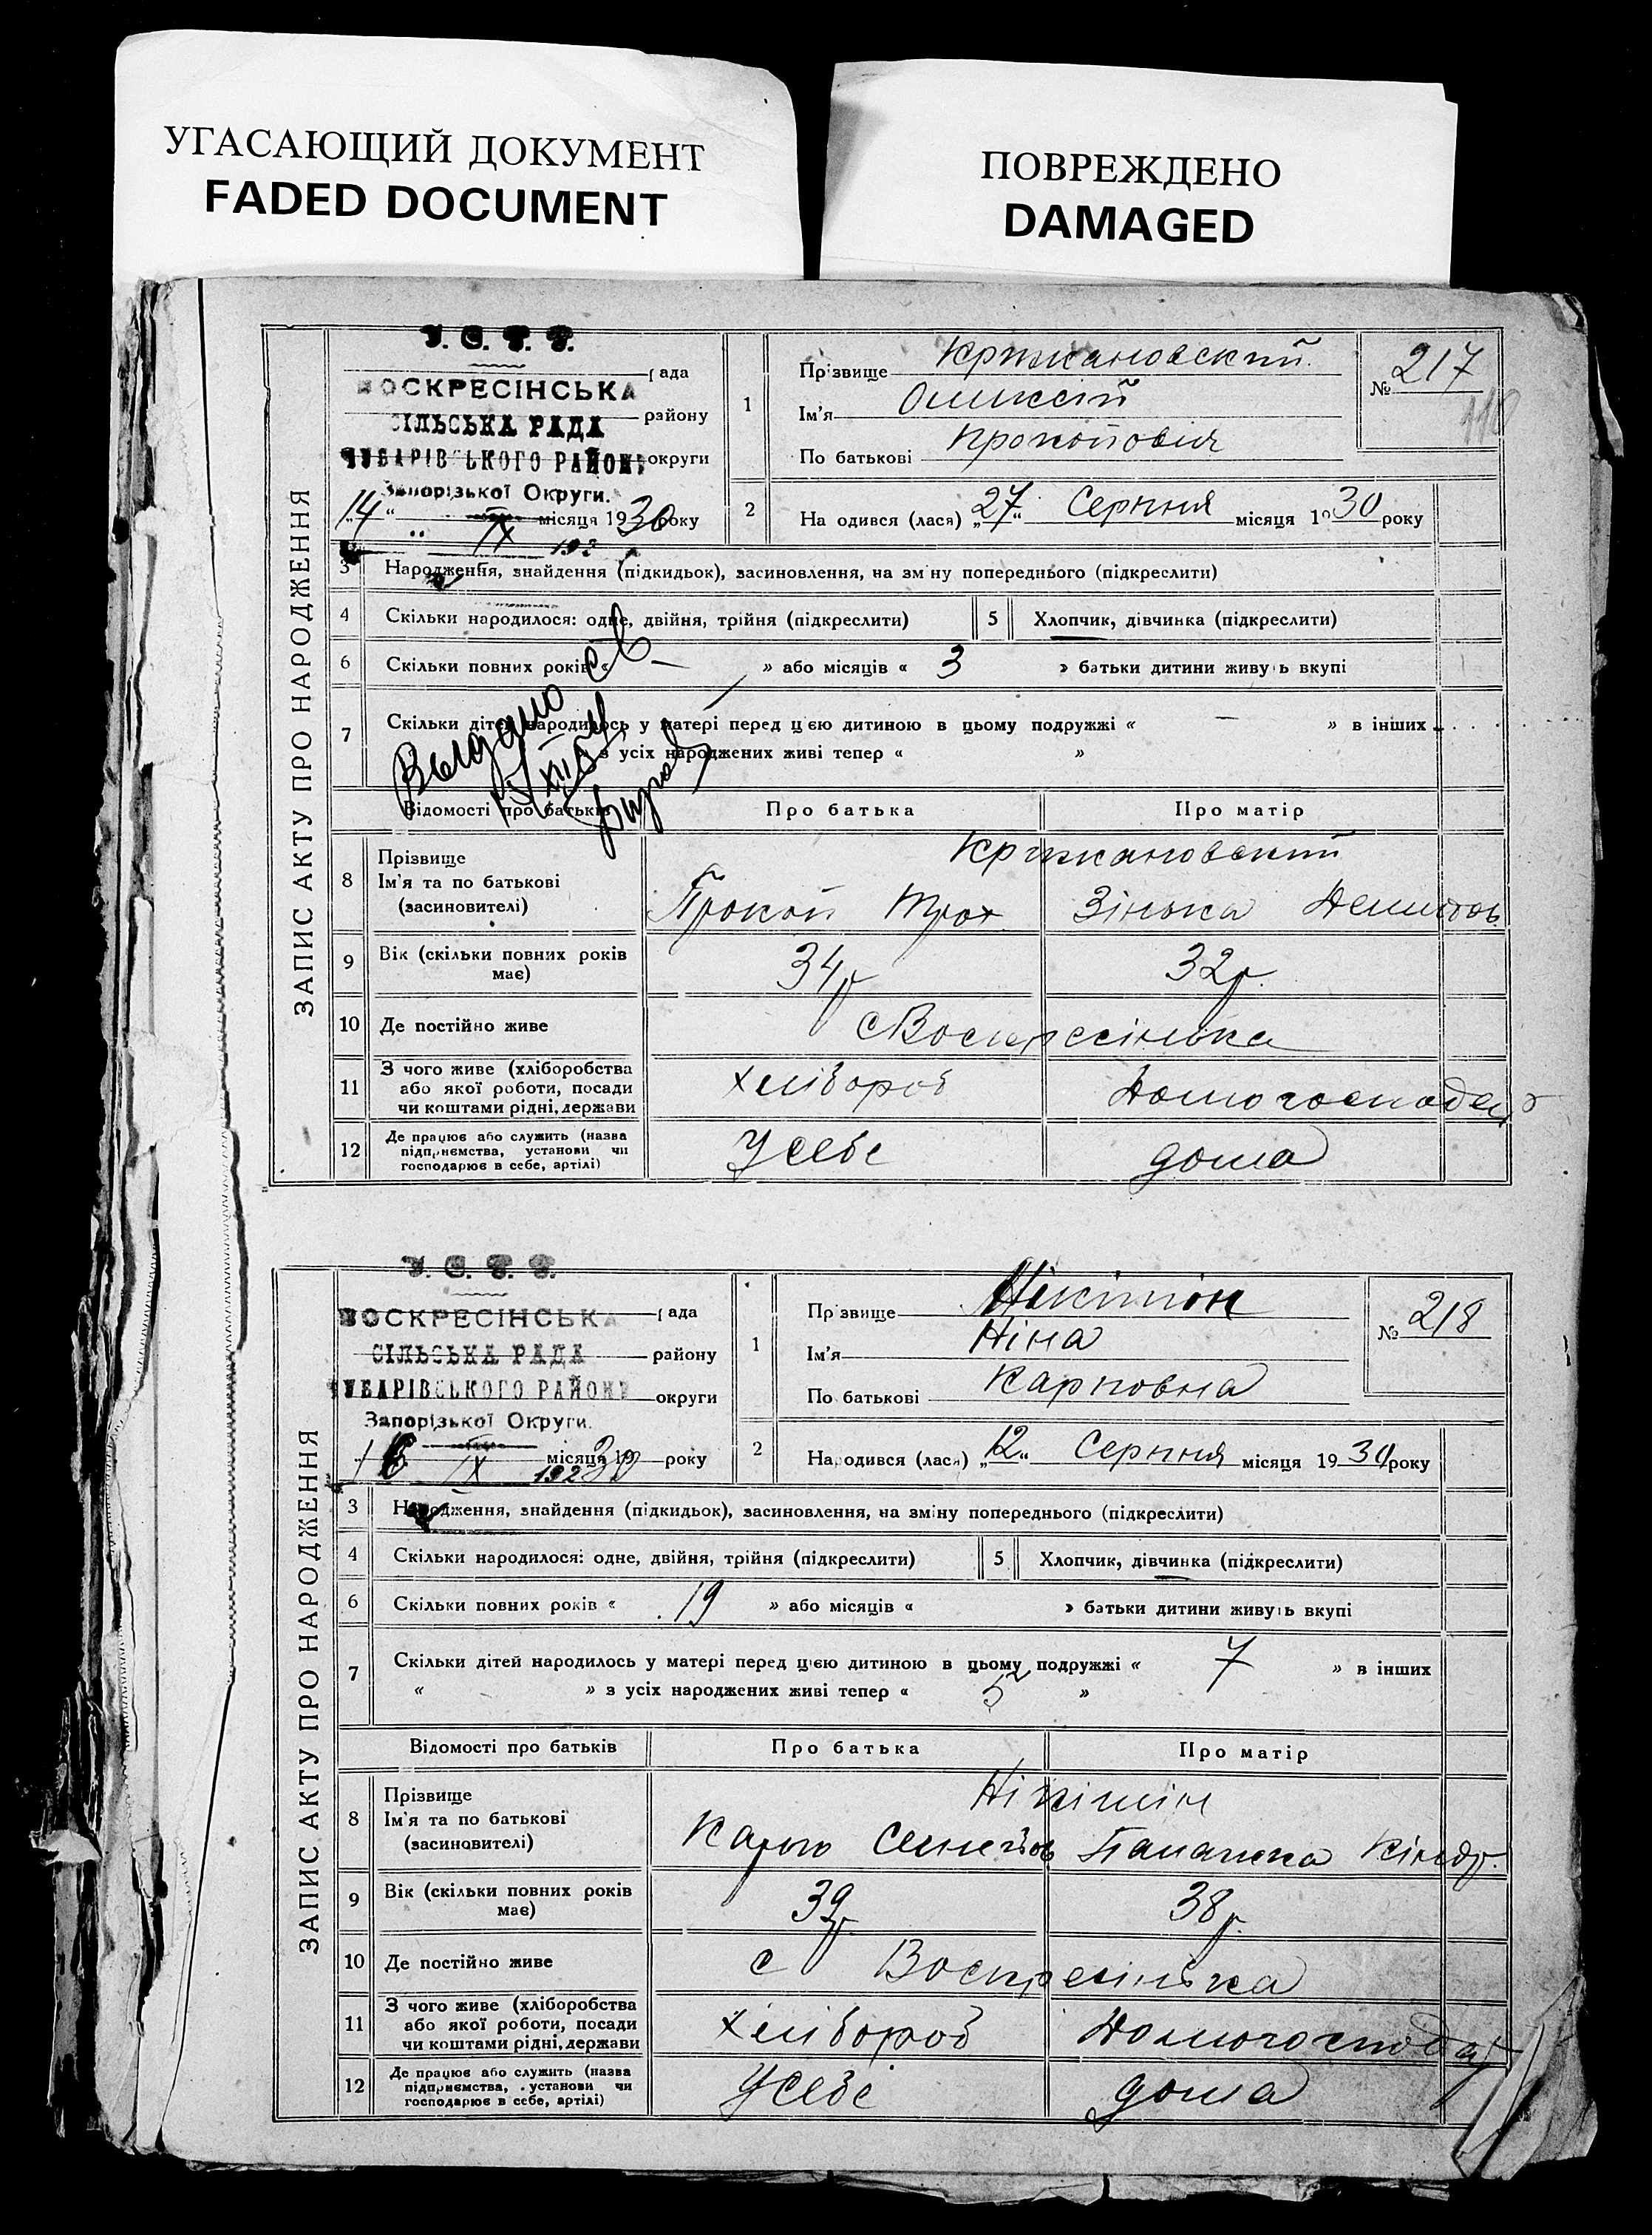 УГАСАЮЩИЙ ДОКУМЕНТ
FADED DOCUMENT
ПОВРЕЖДЕНО
DAMAGED
ЗАПИС АКТУ ПРО НАРОДЖЕННЯ
У. С. Р. Р.
рада
ВОСКРЕСІНСЬКА
району
СІЛЬСЬКА РАДА
ЧУБАРІВСЬКОГО РАЙОНУ округи
Запорізької Округи.
„14“ місяця 1930 року
IX 192
1 Прізвище Крижановский
Ім'я Олексій
По батькові Прокопович
№ 217
118
2 Народився (лася) „27“ Серпня місяця 1930 року
3 Народження, знайдення (підкидьок), засиновлення, на зміну попереднього (підкреслити)
4 Скільки народилося: одне, двійня, трійня (підкреслити) 5 Хлопчик, дівчинка (підкреслити)
6 Скільки повних років « — » або місяців « 3 » батьки дитини живуть вкупі
7 Скільки дітей народилось у матері перед цією дитиною в цьому подружжі « — » в інших
з усіх народжених живі тепер « »
Выдано св
Відомості про батьків Про батька Про матір
8 Прізвище Крижановский
Ім'я та по батькові Прокоп Трох Зінька Демидов
(засиновителі)
9 Вік (скільки повних років має) 34 р 32 р.
10 Де постійно живе с Воскресінька
11 З чого живе (хліборобства або якої роботи, посади чи коштами рідні, держави Хлібороб Домогосподар
12 Де працює або служить (назва підприємства, установи чи господарює в себе, артілі) У себе дома
ЗАПИС АКТУ ПРО НАРОДЖЕННЯ
У. С. Р. Р.
ВОСКРЕСІНСЬКА рада
СІЛЬСЬКА РАДА району
ЧУБАРІВСЬКОГО РАЙОНУ округи
Запорізької Округи.
16 місяця 19 року
IX 192 30
1 Прізвище Нікітін
Ім'я Ніна
По батькові Карповна
№ 218
2 Народився (лася) „12“ Серпня місяця 1930 року
3 Народження, знайдення (підкидьок), засиновлення, на зміну попереднього (підкреслити)
4 Скільки народилося: одне, двійня, трійня (підкреслити) 5 Хлопчик, дівчинка (підкреслити)
6 Скільки повних років « 19 » або місяців « » батьки дитини живуть вкупі
7 Скільки дітей народилось у матері перед цією дитиною в цьому подружжі « 7 » в інших
« » з усіх народжених живі тепер « 5 »
Відомості про батьків Про батька Про матір
8 Прізвище Нікітін
Ім'я та по батькові Карпо Семенов Палажка Кіндр.
(засиновителі)
9 Вік (скільки повних років має) 39 р 38 р.
10 Де постійно живе с Воскресінька
11 З чого живе (хліборобства або якої роботи, посади чи коштами рідні, держави Хлібороб Домогосподар
12 Де працює або служить (назва підприємства, установи чи господарює в себе, артілі) У себе дома